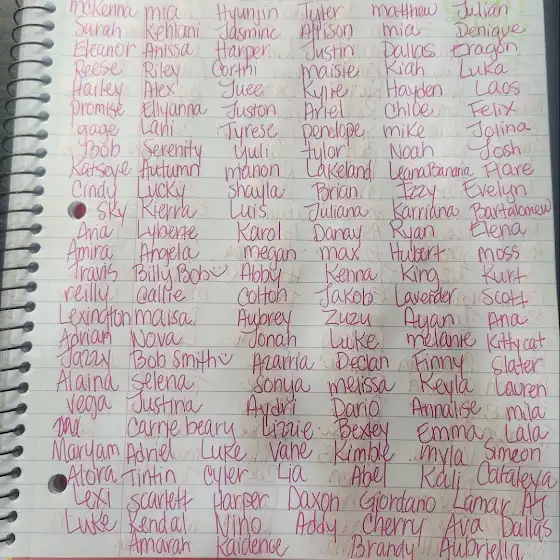 McKenna mia Hyunjin Tyler matthew Julian
Sarah Kehlani Jasmine Allison mia Denique
Eleanor Anissa Harper Justin Dallas Eragon
Reese Riley Corthi maisie Kiah Luka
Hailey Alex Juee Kylie Hayden Laos
Promise Ellyanna Juston Ariel Chloe Felix
gage Lani Tyrese penelope mike Jolina
Bob Serenity Yuli Tylor Noah Josh
Katseye Autumn manon Lakeland LeanaBanana Hare
Cindy Lucky shayla Brian Izzy Evelyn
Sky Kierra Luis Juliana Karriana Bartalomew
Aria Lyberte Karol Danay Ryan Elena
Amira Angela megan max Hubert moss
Travis Billy Bob Abby Kenna King Kurt
reilly Callie Colton Jakob Lavender Scott
Lexington maisa Aubrey Zuzu Ayan Ana
Adriah Nova Jonah Luke melanie Kitty cat
Jazzy Bob Smith Azarria Declan Finny Slater
Alaina selena sonya melissa Keyla Lauren
Vega Justina Aydri Dario Annalise mila
Carrye beary Lizzie Bexley Emma Lala
Maryam Adriel Luke Vahe Kimble myla Simeon
Alora Tintin Cyler Lia Abel Kali Cataleya
Lexi scarlett Harper Daxon Giordano Lamar AJ
Luke Kendal Nino Addy Cherry Ava Dallas
Amarah Kaidence Brandy Aubriella